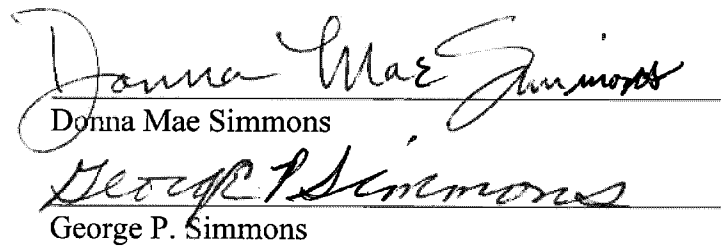 Donna Mae Simmons
Donna Mae Simmons
George P Simmons
George P. Simmons